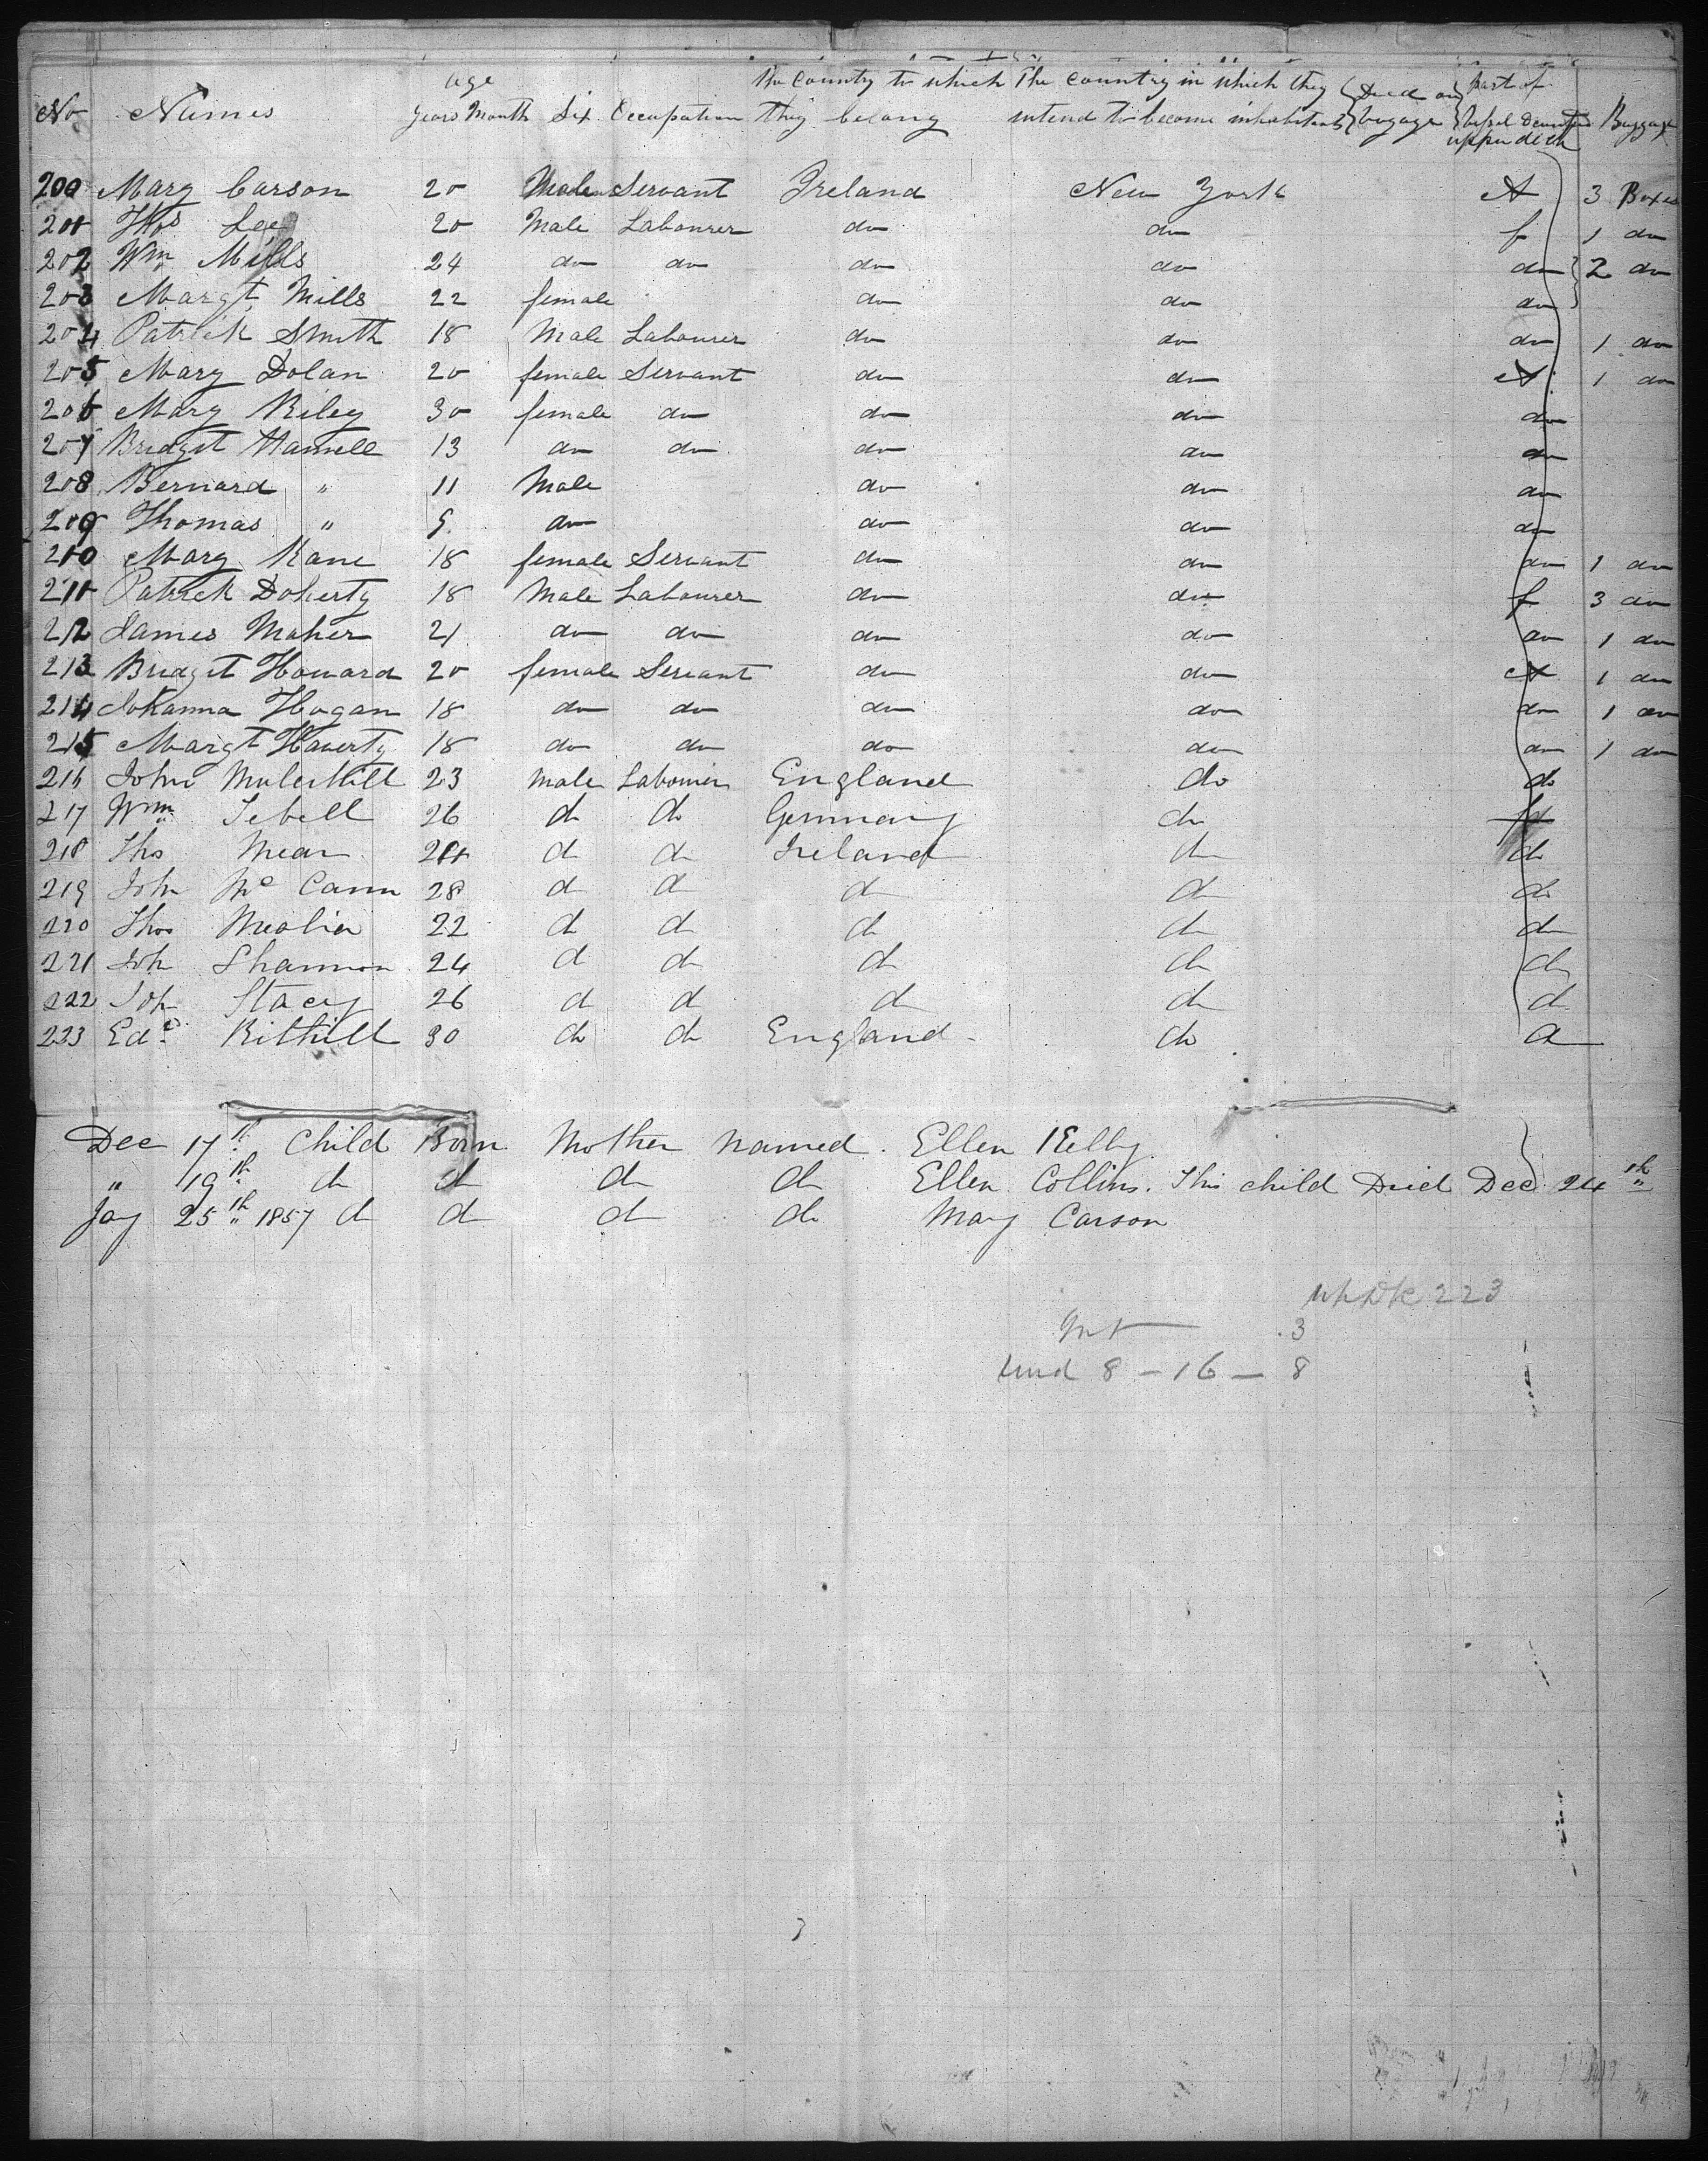 age The Country to which The country in which they Died on Part of
No Names Years Month Sex Occupation they belong intend to become inhabitants voyage Vessel upper deck Baggage
200 Mary Carson 20 Servant Ireland New York A 3 Boxes
201 Thos Lee 20 Male Labourer do do f 1 do
202 Wm Mills 24 do do do do do 2 do
203 Margt Mills 22 female do do do
204 Patrick Smith 18 Male Labourer do do do 1 do
205 Mary Dolan 20 female Servant do do A 1 do
206 Mary Riley 30 female do do do do
207 Bridget 13 do do do do do
208 Bernard " 11 Male do do do
209 Thomas " 9 do do do do
210 Mary Kane 18 female Servant do do do 1 do
211 Patrick Doherty 18 Male Labourer do do f 3 do
212 James Maher 21 do do do do do 1 do
213 Bridget Howard 20 female Servant do do A 1 do
214 Johanna Hogan 18 do do do do do 1 do
215 Margt Haverty 18 do do do do do 1 do
216 John 23 Male Labourer England do do
217 Wm Tebell 26 do do Germany do
218 Thos Mear do do Ireland do do
219 John Mc Cann 28 do do do do do
220 Thos Mealia 22 do do do do do
221 Joh Shannon 24 do do do do do
222 Joh Stacy 26 do do do do do
223 Edd 30 do do England do do
Dec 17th Child Born Mother named Ellen Kelly
" 19th do do do do Ellen Collins. This child Died Dec 24th
Jay 25th 1857 do do do do Mary Carson
223
3
und 8 - 16 - 8